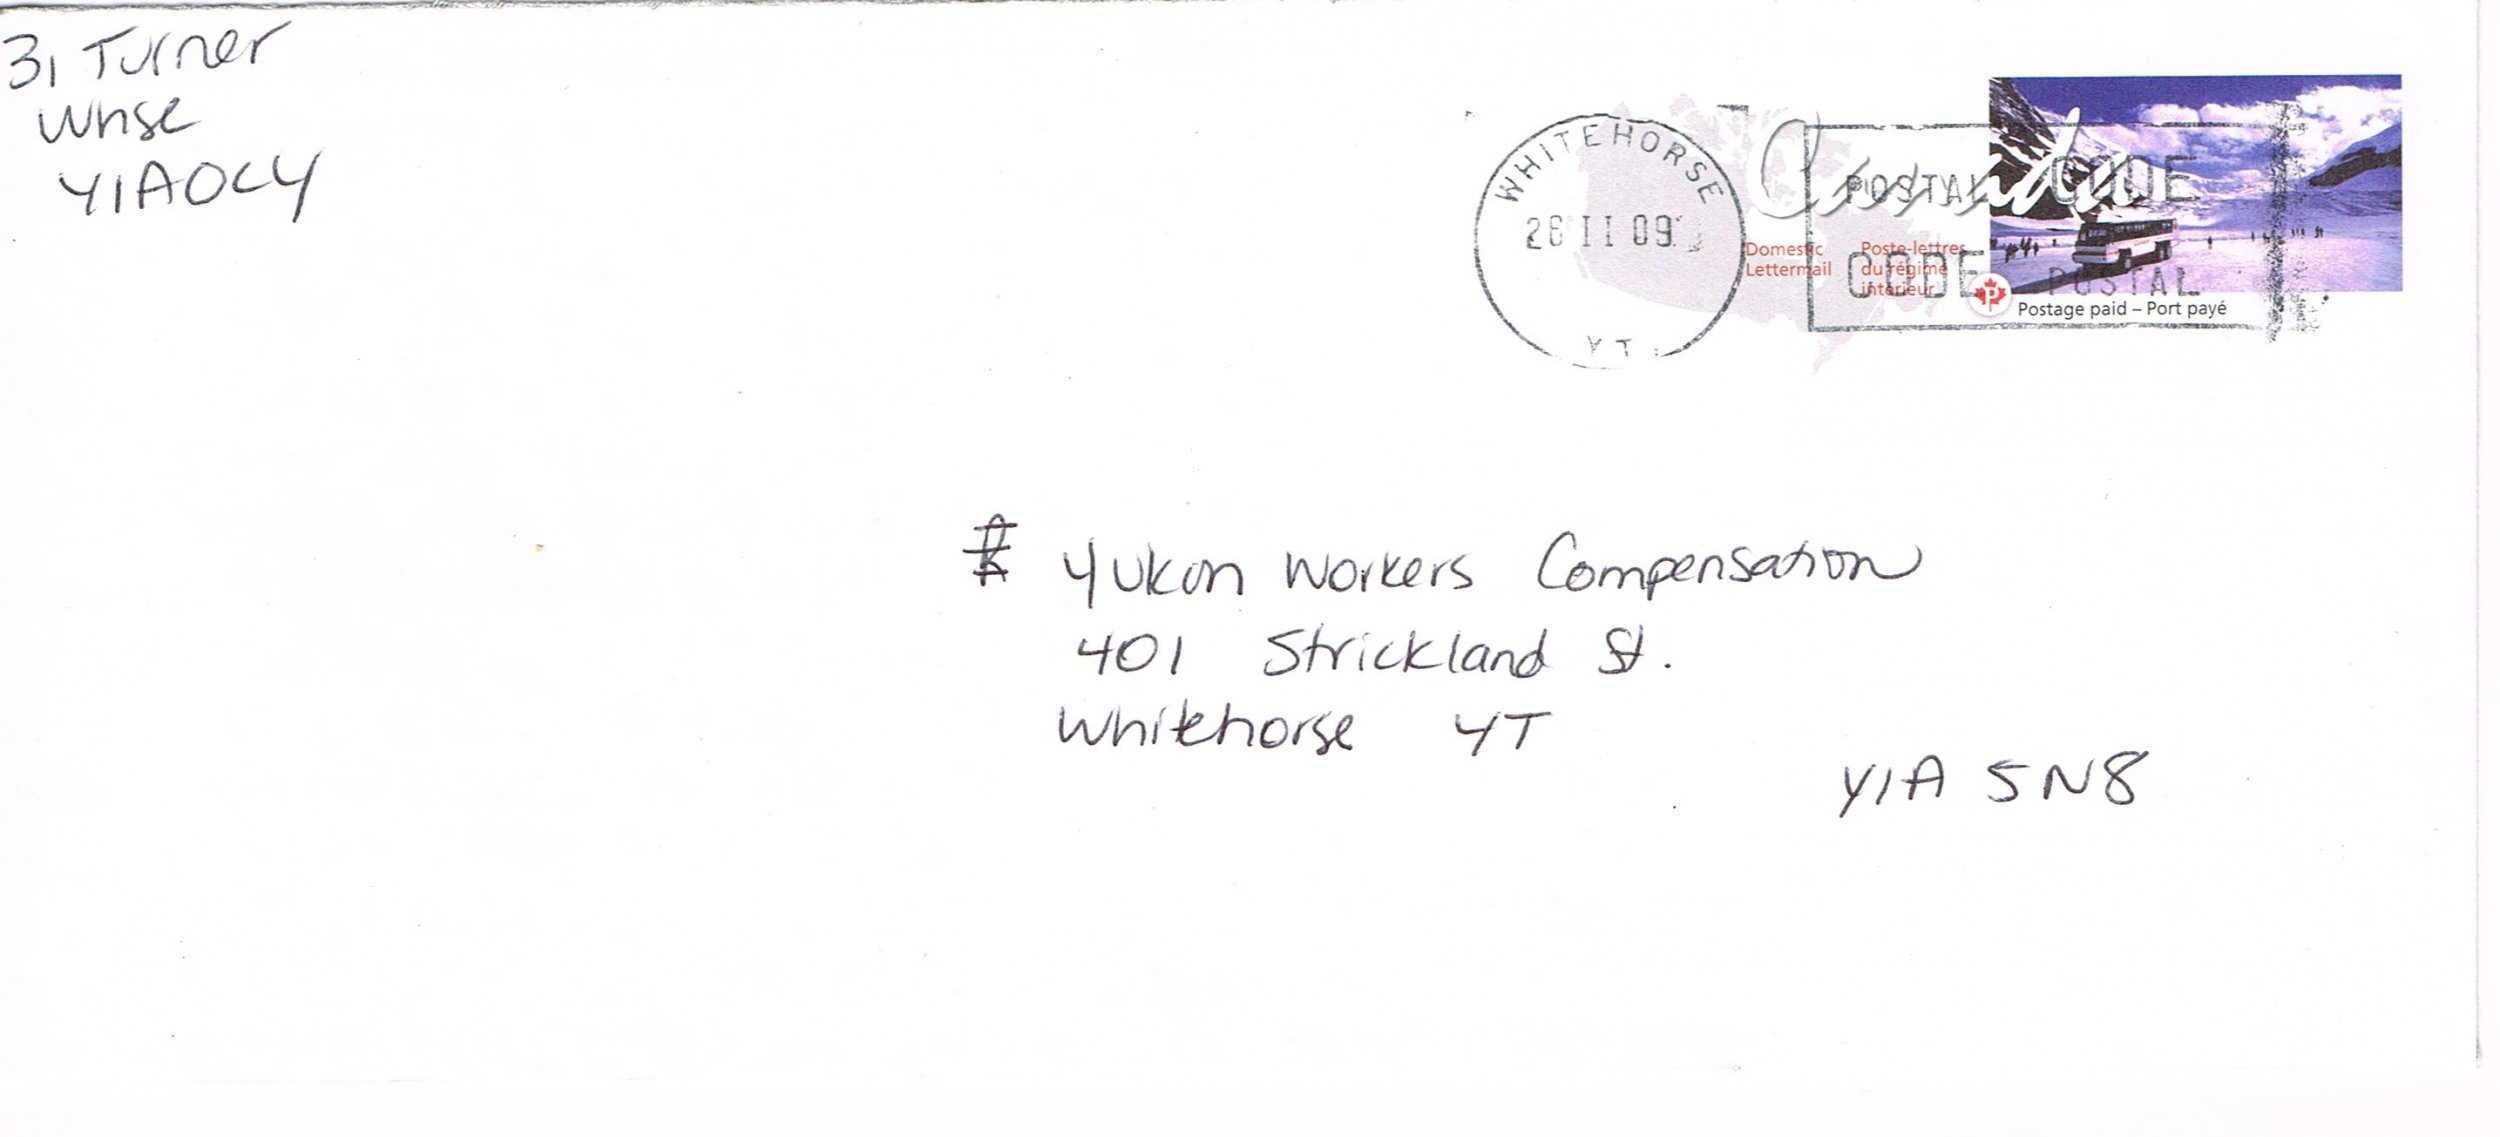 31 Turner
Whse
Y1A0C4
WHITEHORSE
26 II 09
YT
Canada
POSTAL CODE
CODE POSTAL
Domestic Lettermail
Poste-lettres du régime intérieur
P
Postage paid – Port payé
Yukon Workers Compensation
401 Strickland St.
Whitehorse YT
Y1A 5N8